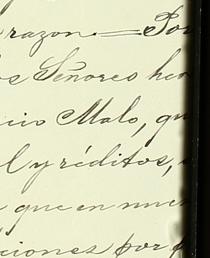 razon.—Por
Señores her
cio Malo, qu
l y réditos,
que en nues
ciones por